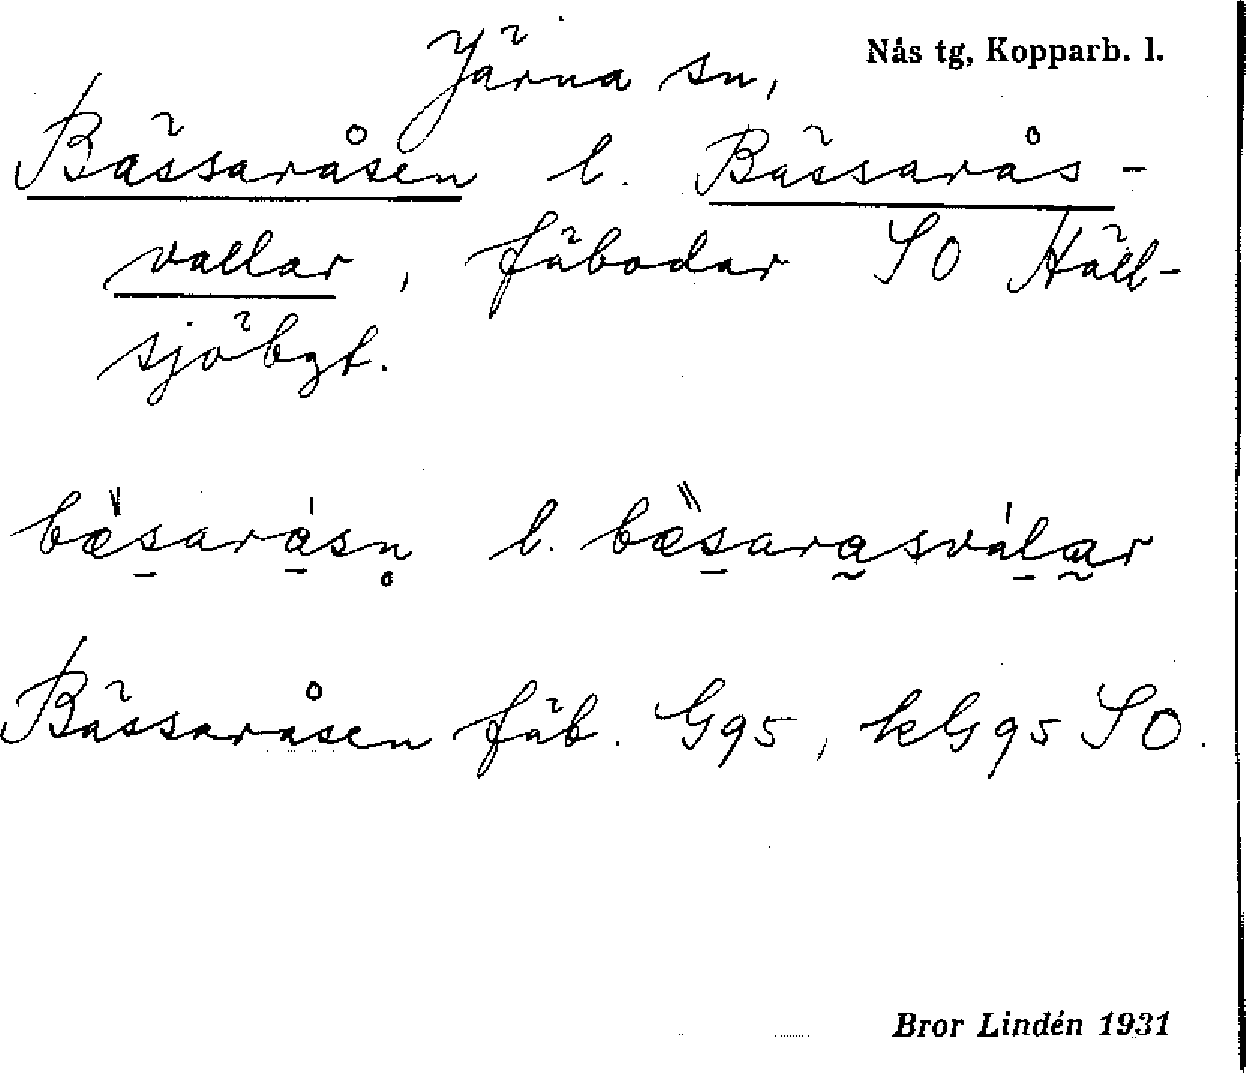 Järna sn, Nås tg, Kopparb. l.
Bässaråsen l. Bässarås-
vallar, fäbodar SO Häll-
sjöbgt.
bæ̀sarásn̥ l. bæ̀sarasválar
Bässaråsen fäb. G95, kG95 SO.
Bror Lindén 1931